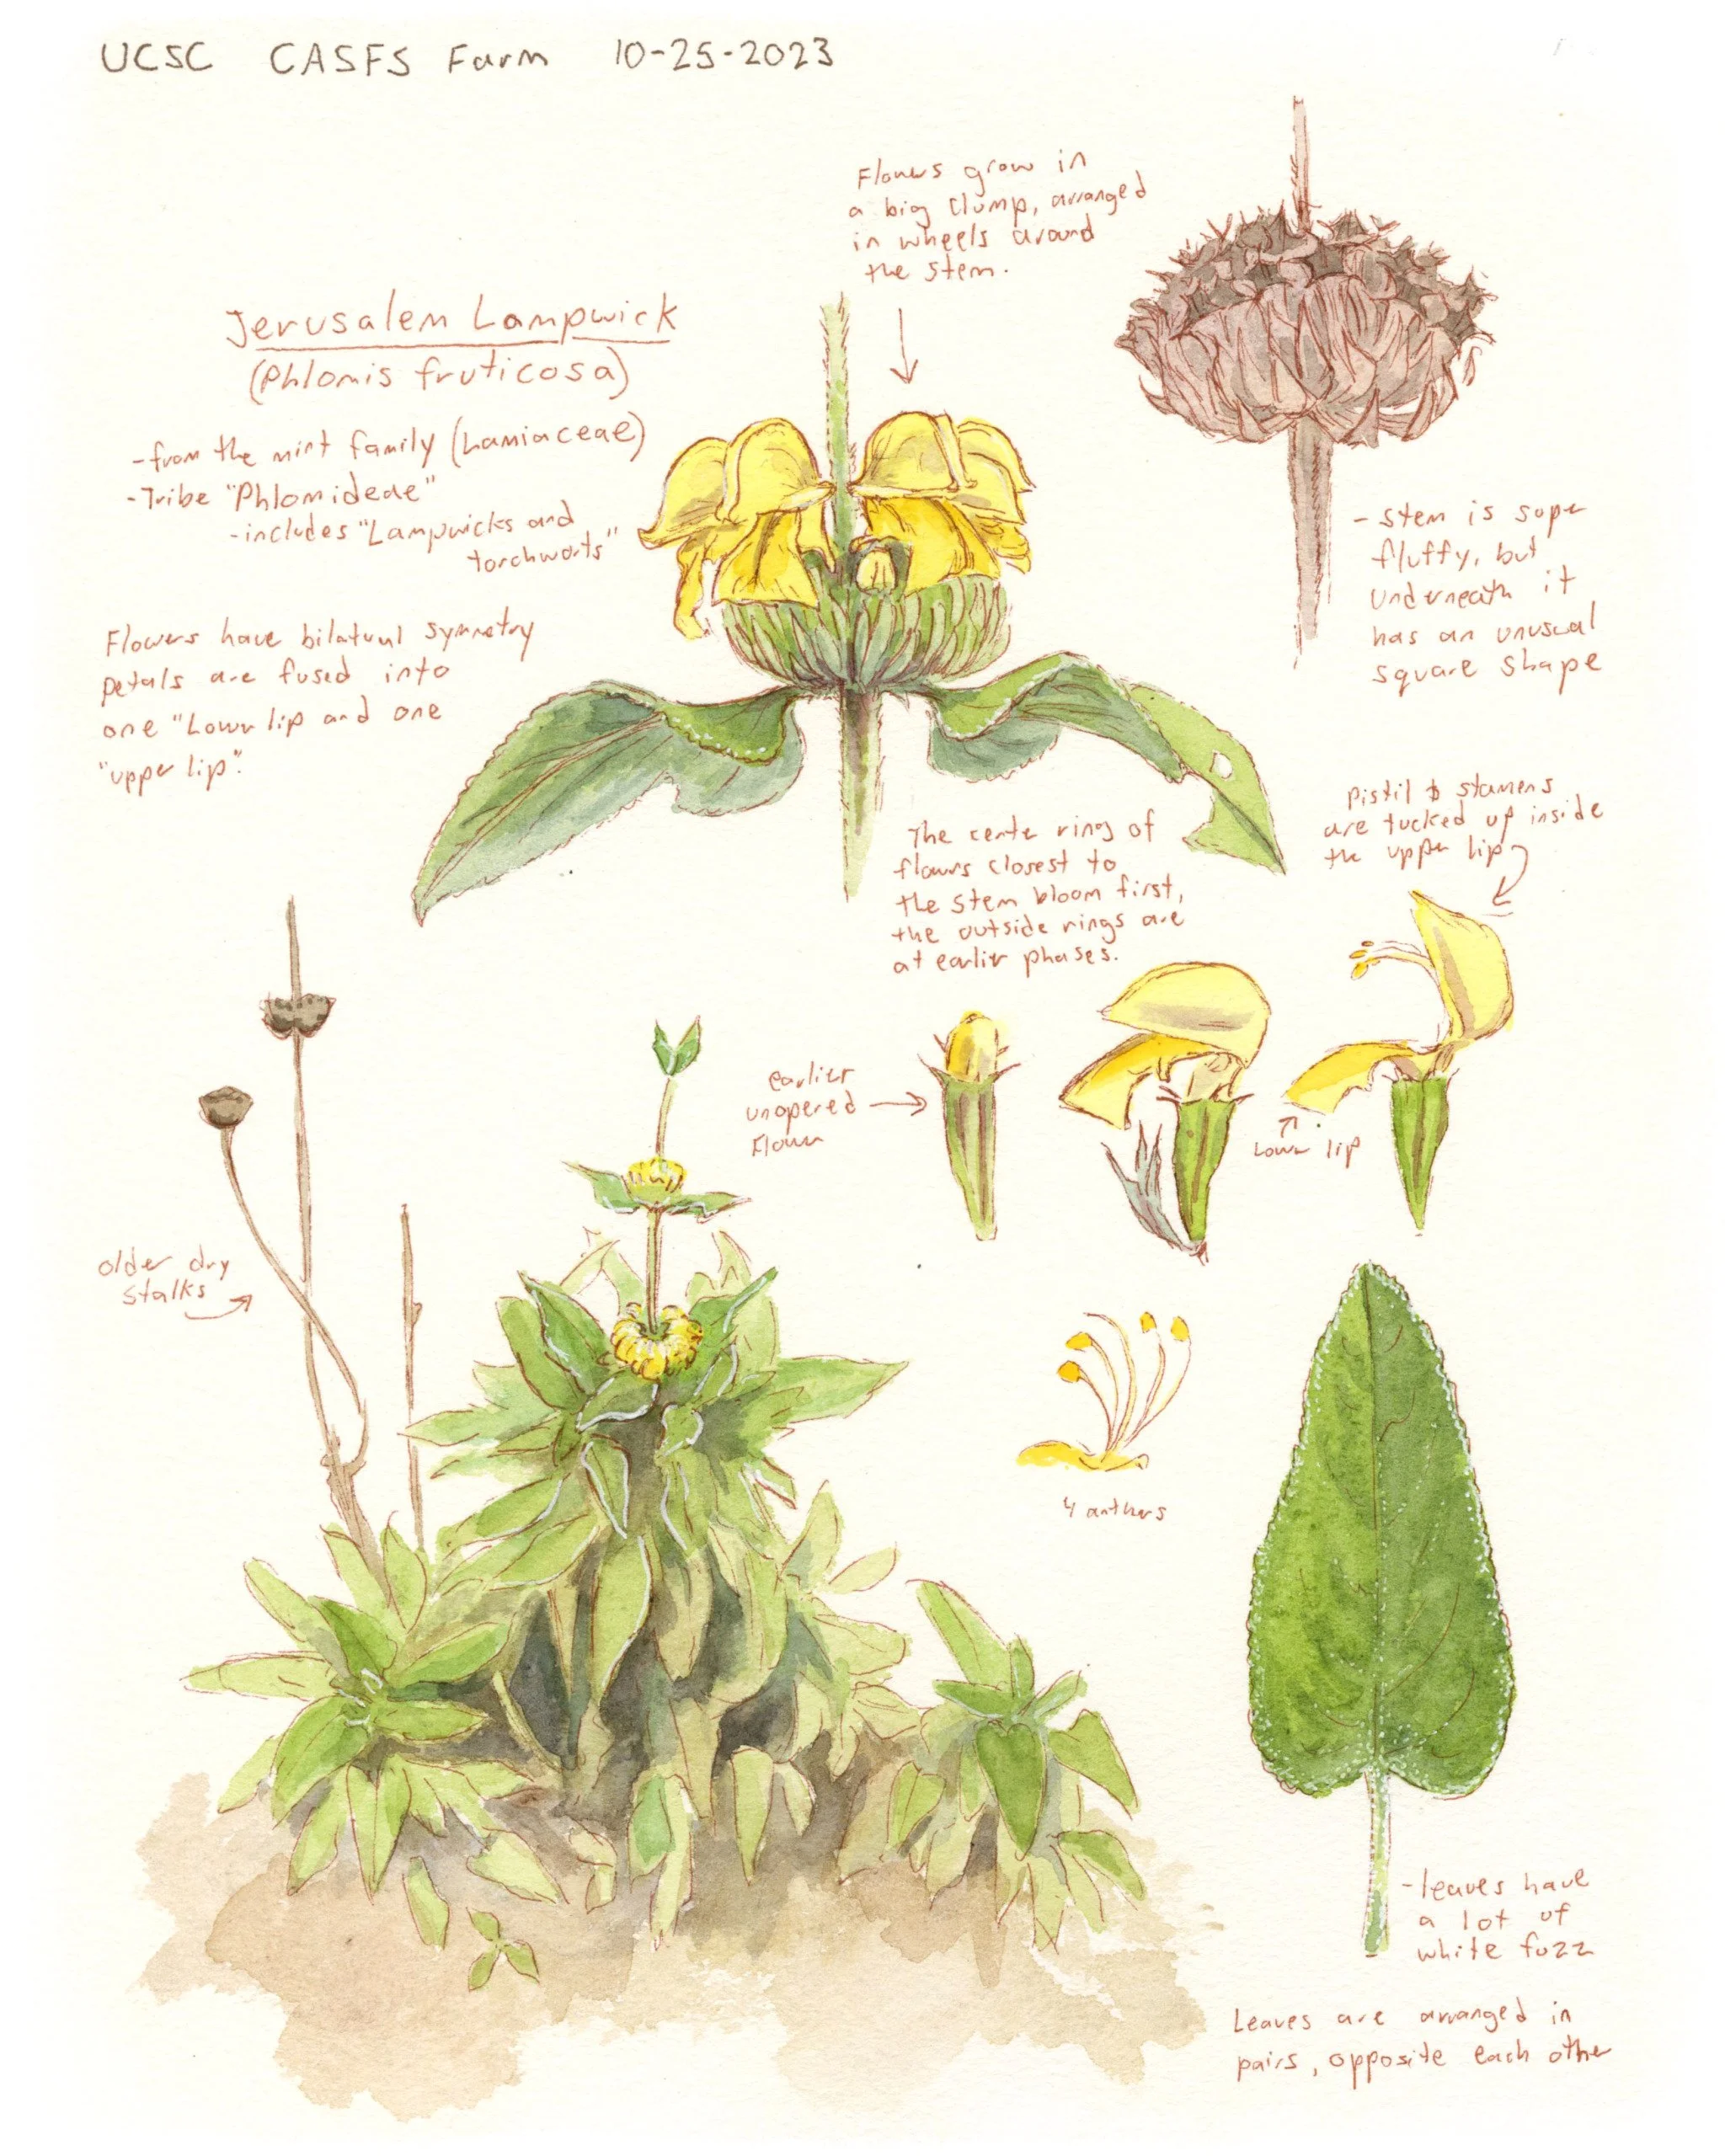 UCSC CASFS Farm 10-25-2023
Flowers grow in
a big clump, arranged
in wheels around
the stem.
Jerusalem Lampwick
(Phlomis fruticosa)
-from the mint family (Lamiaceae)
-Tribe "Phlomideae"
-includes "Lampwicks and
torchworts"
Flowers have bilateral symmetry
petals are fused into
one "Lower lip and one
"upper lip".
-stem is super
fluffy, but
underneath it
has an unusual
square shape
Pistil & stamens
are tucked up inside
the upper lip
The center rings of
flowers closest to
the stem bloom first,
the outside rings are
at earlier phases.
earlier
unopened
Flower
Lower lip
older dry
stalks
4 anthers
-leaves have
a lot of
white fuzz
Leaves are arranged in
pairs, opposite each other